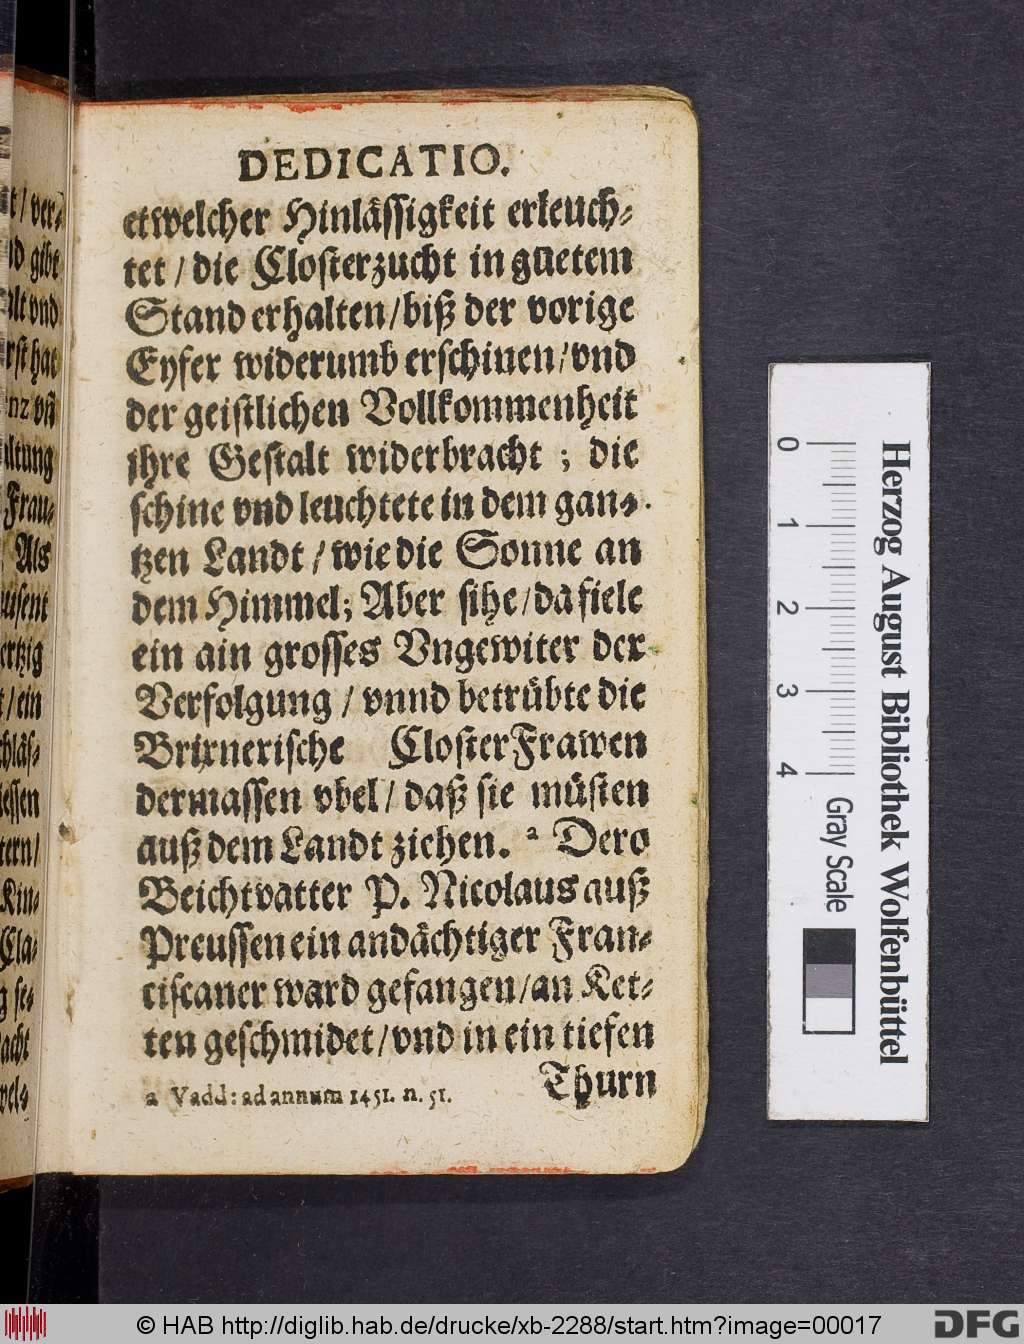 DEDICATIO.
etwelcher Hinlässigkeit erleuch-
tet / die Closterzucht in guetem
Stand erhalten / biß der vorige
Eyfer widerumb erschinen / vnd
der geistlichen Vollkommenheit
jhre Gestalt widerbracht ; die
schine vnd leuchtete in dem gan-
tzen Landt / wie die Sonne an
dem Himmel; Aber sihe / da fiele
ein ain grosses Vngewiter der
Verfolgung / vnnd betrübte die
Brixnerische ClosterFrawen
dermassen vbel / daß sie müsten
auß dem Landt ziehen. a Dero
Beichtvatter P. Nicolaus auß
Preussen ein andächtiger Fran-
ciscaner ward gefangen / an Ket-
ten geschmidet / vnd in ein tiefen
Thurn
a Vadd: ad annum 1451. n. 51.
t / ver-
gibt
vnd
hat
vñ
Frau-
Als
ein
Kin-
Cla-
se-
0 1 2 3 4
Gray Scale
Herzog August Bibliothek Wolfenbüttel
© HAB http://diglib.hab.de/drucke/xb-2288/start.htm?image=00017
DFG